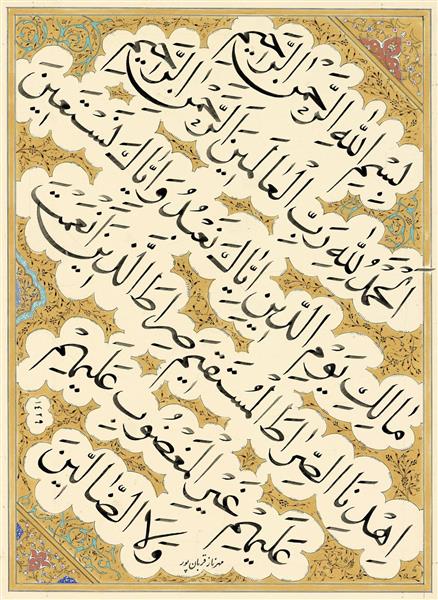 بِسْمِ اللهِ الرَّحْمٰنِ الرَّحِيمِ
اَلْحَمْدُ لِلّٰهِ رَبِّ الْعَالَمِينَ الرَّحْمٰنِ الرَّحِيمِ
مَالِكِ يَوْمِ الدِّينِ اِيَّاكَ نَعْبُدُ وَاِيَّاكَ نَسْتَعِينُ
اِهْدِنَا الصِّرَاطَ الْمُسْتَقِيمَ صِرَاطَ الَّذِينَ اَنْعَمْتَ
عَلَيْهِمْ غَيْرِ الْمَغْضُوبِ عَلَيْهِمْ
وَلَا الضَّالِّينَ
مهرناز قربان پور
١٤٢٩